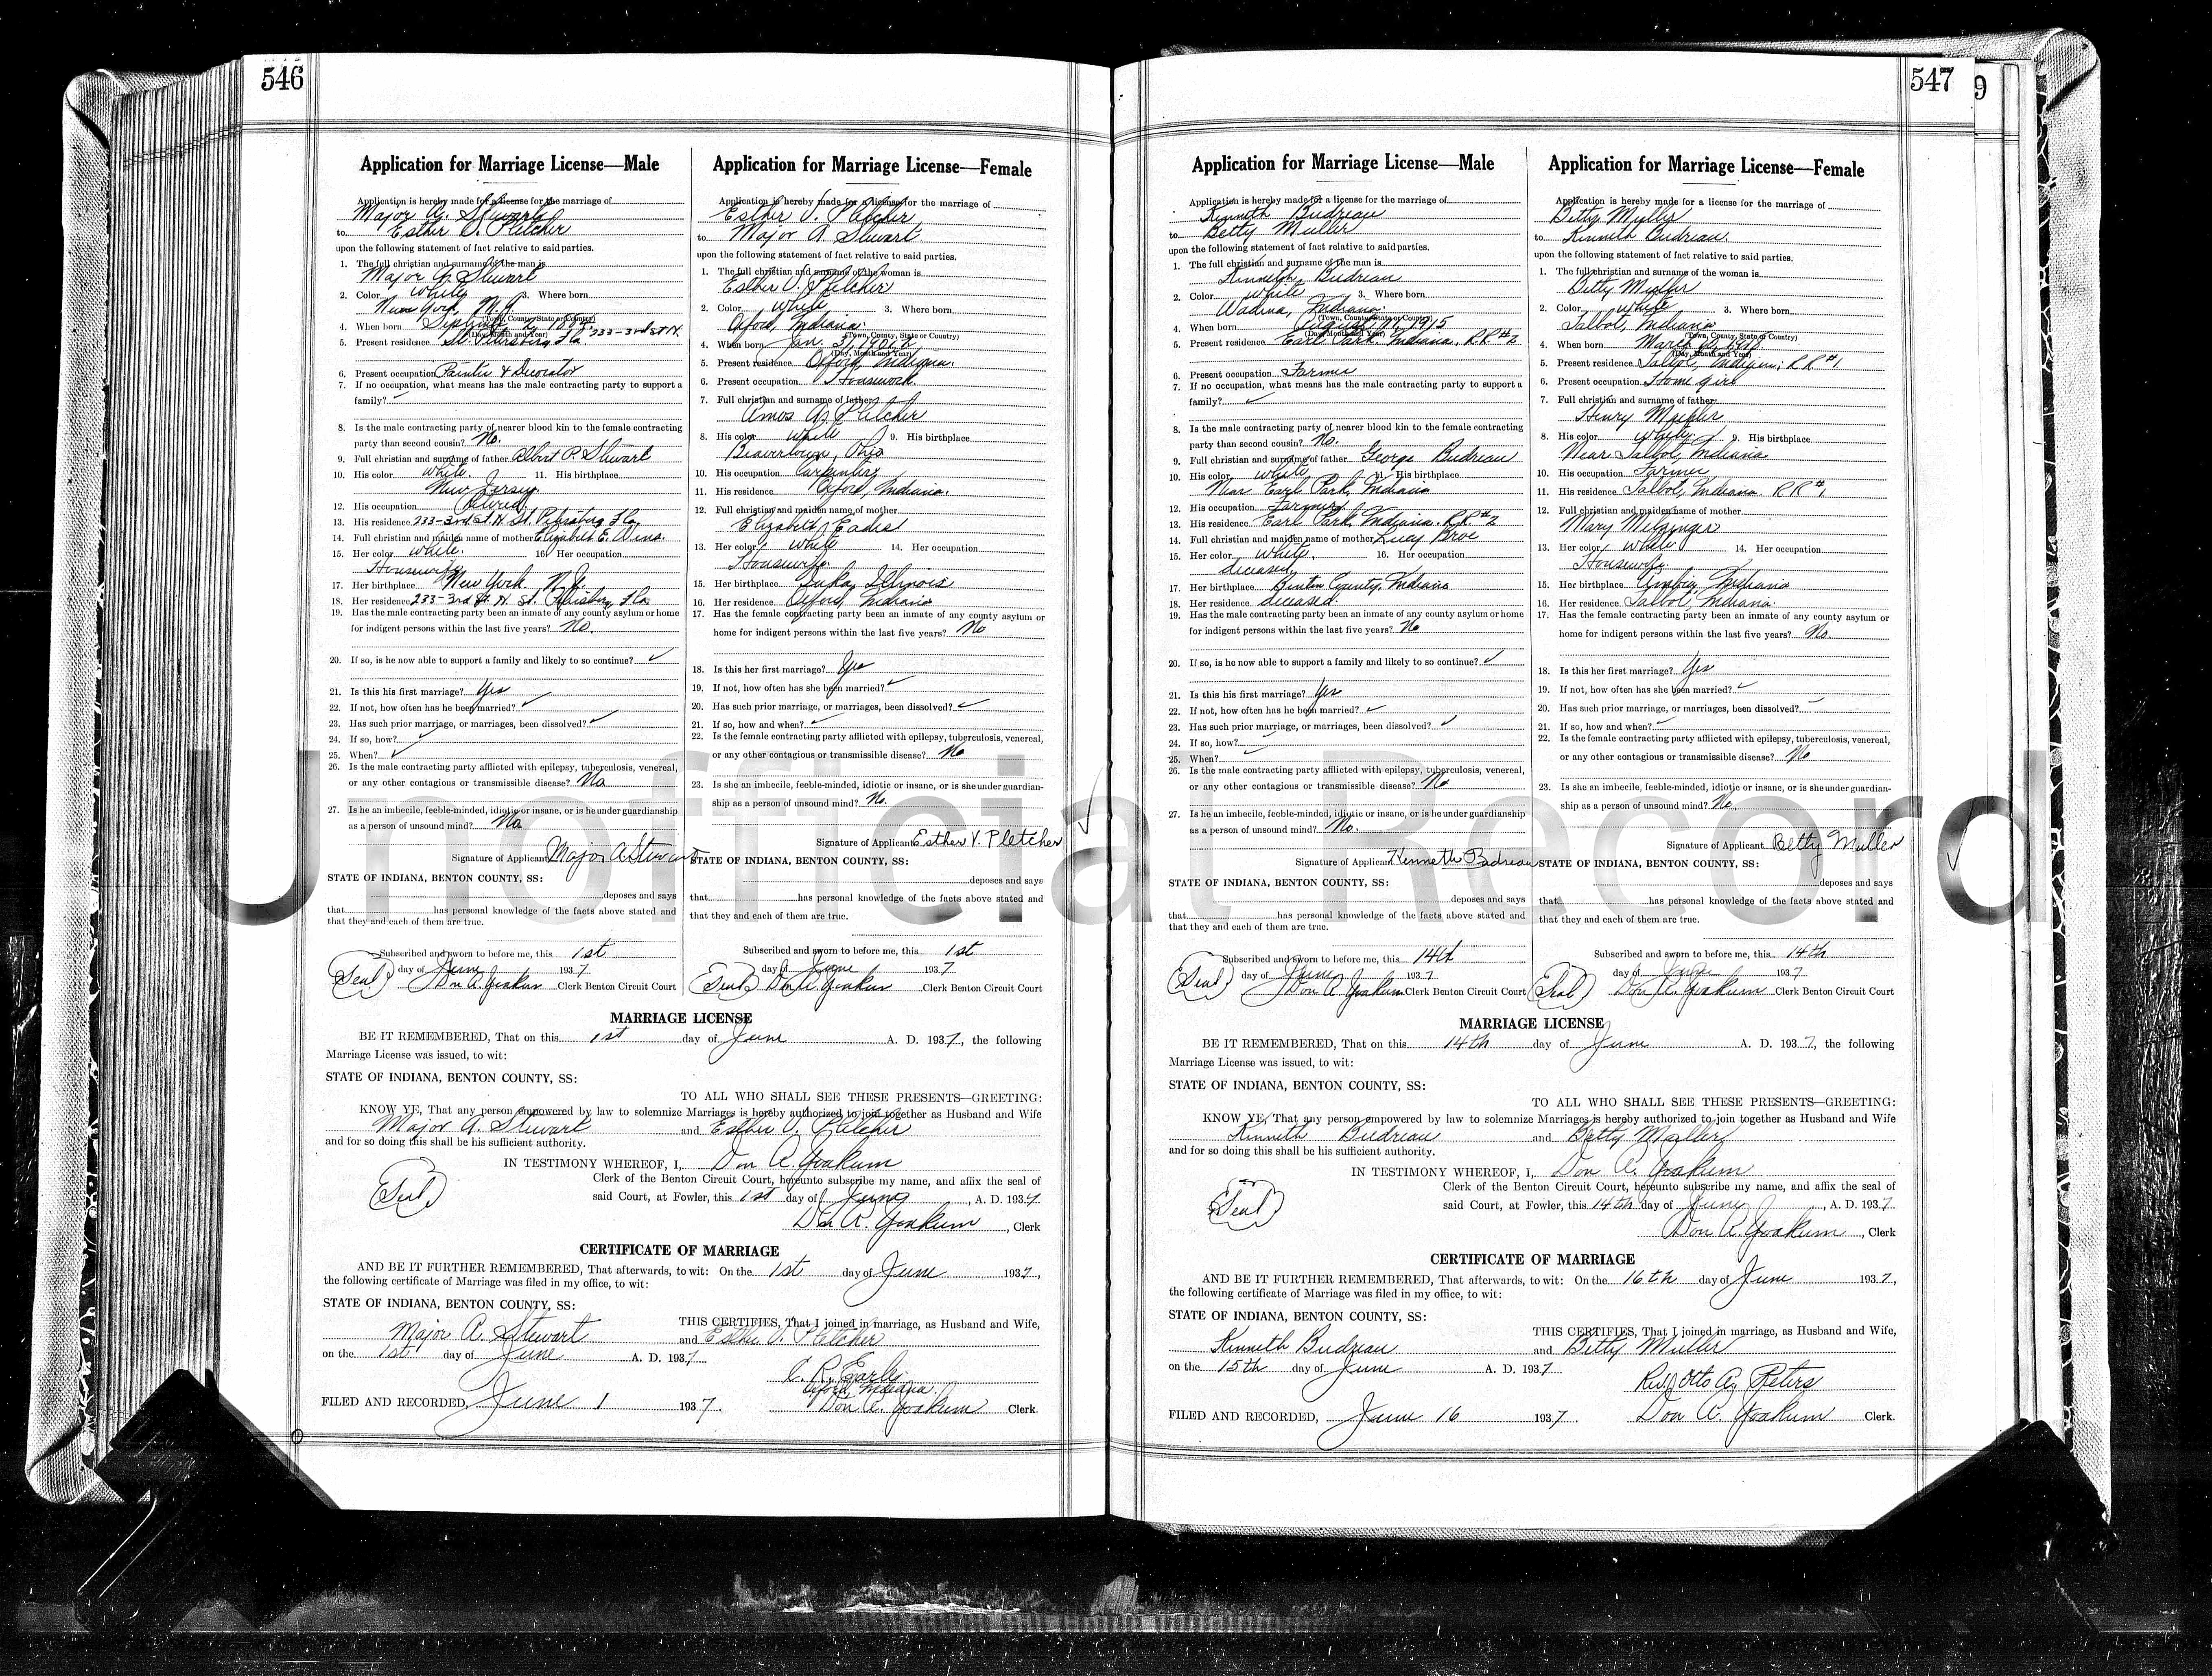 546
Application for Marriage License—Male
Application is hereby made for a license for the marriage of
Major A. Stewart
to Esther V. Pletcher
upon the following statement of fact relative to said parties.
1. The full christian and surname of the man is
Major A. Stewart
2. Color White 3. Where born
New York, N.Y.
(Town, County, State or Country)
4. When born
(Day, Month and Year)
5. Present residence St. Petersburg Fla 233-3rd St N.
6. Present occupation Painter & Decorator
7. If no occupation, what means has the male contracting party to support a
family? ✓
8. Is the male contracting party of nearer blood kin to the female contracting
party than second cousin? No.
9. Full christian and surname of father Albert R. Stewart
10. His color White. 11. His birthplace
New Jersey
12. His occupation Retired
13. His residence 233-3rd St. N. St. Petersburg Fla.
14. Full christian and maiden name of mother Elizabeth E.
15. Her color White. 16. Her occupation
Housewife
17. Her birthplace New York. N.Y.
18. Her residence 233-3rd St. N. St. Petersburg Fla
19. Has the male contracting party been an inmate of any county asylum or home
for indigent persons within the last five years? No.
20. If so, is he now able to support a family and likely to so continue? ✓
21. Is this his first marriage? Yes
22. If not, how often has he been married? ✓
23. Has such prior marriage, or marriages, been dissolved? ✓
24. If so, how? ✓
25. When? ✓
26. Is the male contracting party afflicted with epilepsy, tuberculosis, venereal,
or any other contagious or transmissible disease? No
27. Is he an imbecile, feeble-minded, idiotic or insane, or is he under guardianship
as a person of unsound mind? No.
Signature of Applicant Major A. Stewart
STATE OF INDIANA, BENTON COUNTY, SS:
deposes and says
that has personal knowledge of the facts above stated and
that they and each of them are true.
Subscribed and sworn to before me, this 1st
(Seal) day of June 1937
Don A. Yoakum Clerk Benton Circuit Court
Application for Marriage License—Female
Application is hereby made for a license for the marriage of
Esther V. Pletcher
to Major A Stewart
upon the following statement of fact relative to said parties.
1. The full christian and surname of the woman is
Esther V. Pletcher
2. Color White 3. Where born
Oxford, Indiana.
(Town, County, State or Country)
4. When born Jan. 31,
(Day, Month and Year)
5. Present residence Oxford, Indiana.
6. Present occupation Housework
7. Full christian and surname of father
Amos A. Pletcher
8. His color White 9. His birthplace
Beavertown, Ohio
10. His occupation Carpenter
11. His residence Oxford, Indiana.
12. Full christian and maiden name of mother
Elizabeth Eadis
13. Her color White 14. Her occupation
Housewife
15. Her birthplace Iuka, Illinois
16. Her residence Oxford, Indiana
17. Has the female contracting party been an inmate of any county asylum or
home for indigent persons within the last five years? No
18. Is this her first marriage? Yes
19. If not, how often has she been married? ✓
20. Has such prior marriage, or marriages, been dissolved? ✓
21. If so, how and when? ✓
22. Is the female contracting party afflicted with epilepsy, tuberculosis, venereal,
or any other contagious or transmissible disease? No
23. Is she an imbecile, feeble-minded, idiotic or insane, or is she under guardian-
ship as a person of unsound mind? No.
Signature of Applicant Esther V. Pletcher
STATE OF INDIANA, BENTON COUNTY, SS:
deposes and says
that has personal knowledge of the facts above stated and
that they and each of them are true.
Subscribed and sworn to before me, this 1st
day of June 1937
(Seal) Don A. Yoakum Clerk Benton Circuit Court
MARRIAGE LICENSE
BE IT REMEMBERED, That on this 1st day of June A. D. 1937, the following
Marriage License was issued, to wit:
STATE OF INDIANA, BENTON COUNTY, SS:
TO ALL WHO SHALL SEE THESE PRESENTS—GREETING:
KNOW YE, That any person empowered by law to solemnize Marriages is hereby authorized to join together as Husband and Wife
Major A. Stewart and Esther V. Pletcher
and for so doing this shall be his sufficient authority.
IN TESTIMONY WHEREOF, I, Don A. Yoakum
Clerk of the Benton Circuit Court, hereunto subscribe my name, and affix the seal of
(Seal) said Court, at Fowler, this 1st day of June, A. D. 1937.
Don A. Yoakum, Clerk
CERTIFICATE OF MARRIAGE
AND BE IT FURTHER REMEMBERED, That afterwards, to wit: On the 1st day of June 1937,
the following certificate of Marriage was filed in my office, to wit:
STATE OF INDIANA, BENTON COUNTY, SS:
THIS CERTIFIES, That I joined in marriage, as Husband and Wife,
Major A. Stewart and Esther V. Pletcher
on the 1st day of June A. D. 1937
C. R. Earle
Oxford, Indiana.
FILED AND RECORDED, June 1 1937. Don A. Yoakum Clerk.
547
9
Application for Marriage License—Male
Application is hereby made for a license for the marriage of
Kenneth Budreau
to Betty Muller
upon the following statement of fact relative to said parties.
1. The full christian and surname of the man is
Kenneth Budreau
2. Color White 3. Where born
Wadena, Indiana
(Town, County, State or Country)
4. When born 1915
(Day, Month and Year)
5. Present residence Earl Park, Indiana. R.R. #2
6. Present occupation Farmer
7. If no occupation, what means has the male contracting party to support a
family? ✓
8. Is the male contracting party of nearer blood kin to the female contracting
party than second cousin? No.
9. Full christian and surname of father George Budreau
10. His color White 11. His birthplace
Near Earl Park, Indiana
12. His occupation Farmer
13. His residence Earl Park, Indiana. R.R. #2
14. Full christian and maiden name of mother Lucy Broe
15. Her color White. 16. Her occupation
deceased
17. Her birthplace Benton County, Indiana
18. Her residence deceased.
19. Has the male contracting party been an inmate of any county asylum or home
for indigent persons within the last five years? No
20. If so, is he now able to support a family and likely to so continue? ✓
21. Is this his first marriage? Yes
22. If not, how often has he been married? ✓
23. Has such prior marriage, or marriages, been dissolved? ✓
24. If so, how? ✓
25. When? ✓
26. Is the male contracting party afflicted with epilepsy, tuberculosis, venereal,
or any other contagious or transmissible disease? No
27. Is he an imbecile, feeble-minded, idiotic or insane, or is he under guardianship
as a person of unsound mind? No.
Signature of Applicant Kenneth Budreau
STATE OF INDIANA, BENTON COUNTY, SS:
deposes and says
that has personal knowledge of the facts above stated and
that they and each of them are true.
Subscribed and sworn to before me, this 14th
(Seal) day of June 1937
Don A Yoakum Clerk Benton Circuit Court
Application for Marriage License—Female
Application is hereby made for a license for the marriage of
Betty Muller
to Kenneth Budreau.
upon the following statement of fact relative to said parties.
1. The full christian and surname of the woman is
Betty Muller
2. Color White 3. Where born
Talbot, Indiana
(Town, County, State or Country)
4. When born March
(Day, Month and Year)
5. Present residence Talbot, Indiana; R R #1
6. Present occupation Home girl
7. Full christian and surname of father
Henry Muller
8. His color White 9. His birthplace
Near Talbot, Indiana
10. His occupation Farmer
11. His residence Talbot, Indiana R R #1
12. Full christian and maiden name of mother
Mary Metzinger
13. Her color White 14. Her occupation
Housewife
15. Her birthplace Ambia, Indiana
16. Her residence Talbot, Indiana.
17. Has the female contracting party been an inmate of any county asylum or
home for indigent persons within the last five years? No.
18. Is this her first marriage? Yes
19. If not, how often has she been married? ✓
20. Has such prior marriage, or marriages, been dissolved? ✓
21. If so, how and when? ✓
22. Is the female contracting party afflicted with epilepsy, tuberculosis, venereal,
or any other contagious or transmissible disease? No
23. Is she an imbecile, feeble-minded, idiotic or insane, or is she under guardian-
ship as a person of unsound mind? No.
Signature of Applicant Betty Muller
STATE OF INDIANA, BENTON COUNTY, SS:
deposes and says
that has personal knowledge of the facts above stated and
that they and each of them are true.
Subscribed and sworn to before me, this 14th
day of June 1937
(Seal) Don A. Yoakum Clerk Benton Circuit Court
MARRIAGE LICENSE
BE IT REMEMBERED, That on this 14th day of June A. D. 1937, the following
Marriage License was issued, to wit:
STATE OF INDIANA, BENTON COUNTY, SS:
TO ALL WHO SHALL SEE THESE PRESENTS—GREETING:
KNOW YE, That any person empowered by law to solemnize Marriages is hereby authorized to join together as Husband and Wife
Kenneth Budreau and Betty Muller
and for so doing this shall be his sufficient authority.
IN TESTIMONY WHEREOF, I, Don A. Yoakum
Clerk of the Benton Circuit Court, hereunto subscribe my name, and affix the seal of
(Seal) said Court, at Fowler, this 14th day of June, A. D. 1937.
Don A. Yoakum, Clerk
CERTIFICATE OF MARRIAGE
AND BE IT FURTHER REMEMBERED, That afterwards, to wit: On the 16th day of June 1937,
the following certificate of Marriage was filed in my office, to wit:
STATE OF INDIANA, BENTON COUNTY, SS:
THIS CERTIFIES, That I joined in marriage, as Husband and Wife,
Kenneth Budreau and Betty Muller
on the 15th day of June A. D. 1937
Rev. Otto A. Peters
FILED AND RECORDED, June 16 1937. Don A. Yoakum Clerk.
Unofficial Record